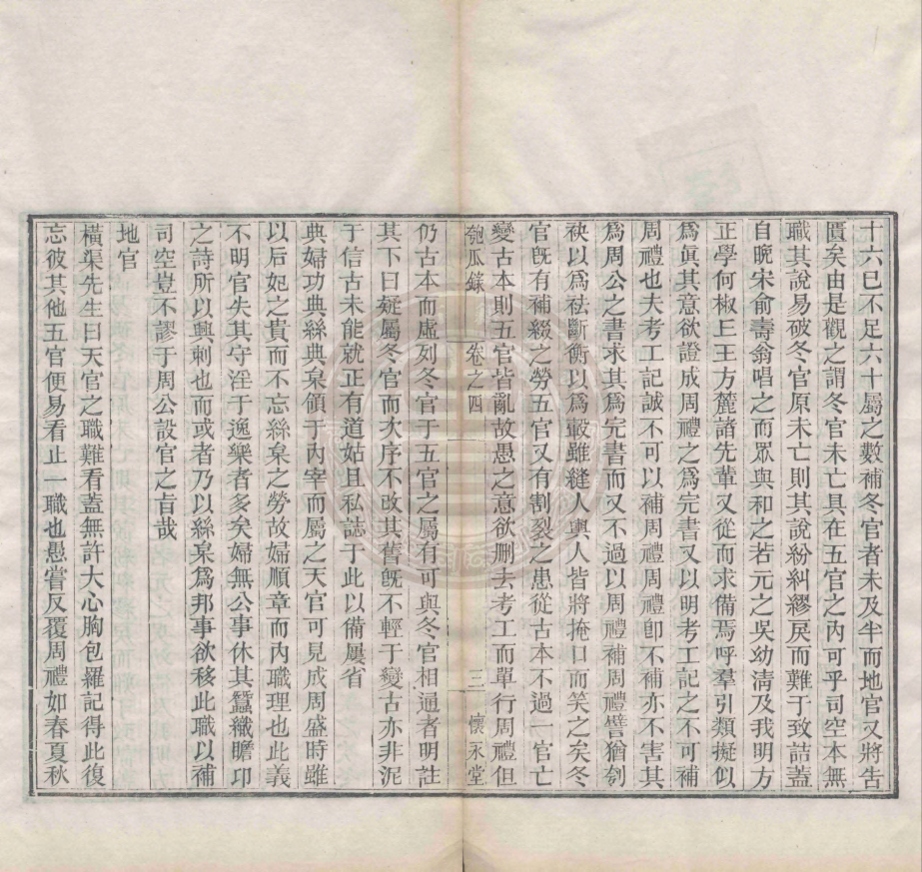 十六已不足六十屬之數補冬官者未及半而地官又將告
匱矣由是觀之謂冬官未亡具在五官之內可乎司空本無
職其說易破冬官原未亡則其說紛糾繆戾而難于致詰蓋
自晚宋俞壽翁唱之而眾與和之若元之吳幼淸及我明方
正學何椒丘王方麓諸先輩又從而求備焉呼羣引類擬似
爲眞其意欲證成周禮之爲完書又以明考工記之不可補
周禮也夫考工記誠不可以補周禮周禮卽不補亦不害其
爲周公之書求其爲完書而又不過以周禮補周禮譬猶刳
袂以爲袪斷衡以爲轂雖縫人輿人皆將掩口而笑之矣冬
官旣有補綴之勞五官又有割裂之患從古本不過一官亡
變古本則五官皆亂故愚之意欲删去考工而單行周禮但
匏瓜錄 卷之四 三 懷永堂
仍古本而虛列冬官于五官之屬有可與冬官相通者明註
其下曰疑屬冬官而次序不改其舊旣不輕于變古亦非泥
于信古未能就正有道姑且私誌于此以備屢省
典婦功典絲典枲領于內宰而屬之天官可見成周盛時雖
以后妃之貴而不忘絲枲之勞故婦順章而內職理也此義
不明官失其守淫于逸樂者多矣婦無公事休其蠶織瞻卬
之詩所以興刺也而或者乃以絲枲爲邦事欲移此職以補
司空豈不謬于周公設官之旨哉
地官
橫渠先生曰天官之職難看蓋無許大心胸包羅記得此復
忘彼其他五官便易看止一職也愚嘗反覆周禮如春夏秋